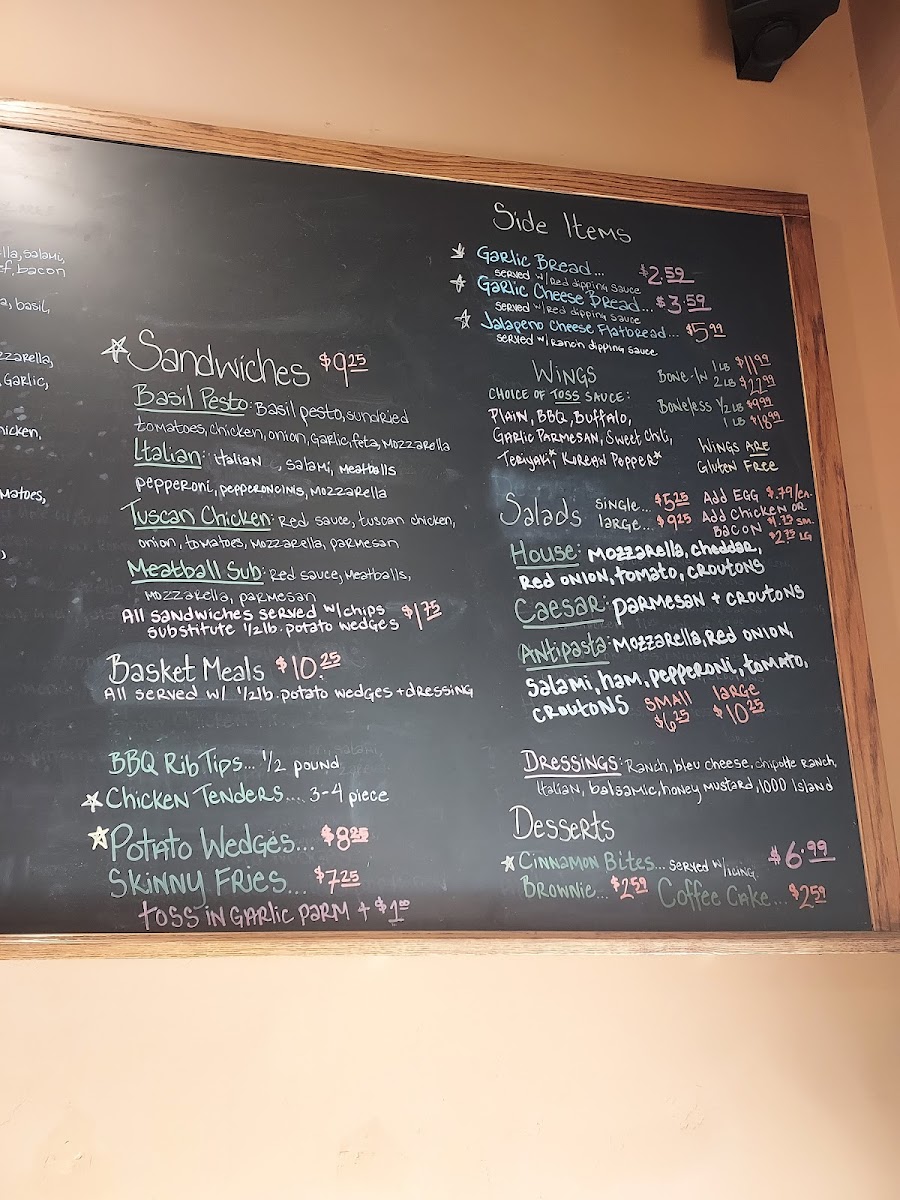 lla, salami,
ef, bacon
a, basil,
zzarella,
Garlic,
hicken,
matoes,
Sandwiches $9.25
Basil Pesto: Basil pesto, sundried
tomatoes, chicken, onion, garlic, feta, mozzarella
Italian: italian, salami, meatballs
pepperoni, pepperoncinis, mozzarella
Tuscan Chicken: Red sauce, tuscan chicken,
onion, tomatoes, mozzarella, parmesan
Meatball Sub: Red sauce, meatballs,
mozzarella, parmesan
All sandwiches served w/chips
substitute 1/2lb. potato wedges $1.75
Basket Meals $10.25
All served w/ 1/2lb. potato wedges + dressing
BBQ Rib Tips... 1/2 pound
Chicken Tenders.... 3-4 piece
Potato Wedges... $8.25
Skinny Fries... $7.25
toss in garlic parm + $1.00
Side Items
Garlic Bread... $2.59
served w/Red dipping sauce
Garlic Cheese Bread... $3.59
served w/red dipping sauce
Jalapeno Cheese Flatbread... $5.99
served w/Ranch dipping sauce
Wings
Choice of toss sauce:
Plain, BBQ, Buffalo,
Garlic Parmesan, Sweet Chili,
Teriyaki*, Korean Pepper*
Bone-In 1 lb $11.99
2 lb $22.99
Boneless 1/2 lb $9.99
1 lb $18.99
Wings are
Gluten Free
Salads single... $5.25
large... $9.25
Add Egg $.79/ea.
Add Chicken or
Bacon $1.75 sm.
$2.75 LG
House: mozzarella, cheddar,
red onion, tomato, croutons
Caesar: parmesan + croutons
Antipasta: mozzarella, red onion,
salami, ham, pepperoni, tomato,
croutons small large
$6.25 $10.25
Dressings: Ranch, bleu cheese, chipotle ranch,
Italian, balsamic, honey mustard, 1000 Island
Desserts
Cinnamon Bites... served w/icing $6.99
Brownie... $2.59 Coffee Cake... $2.59